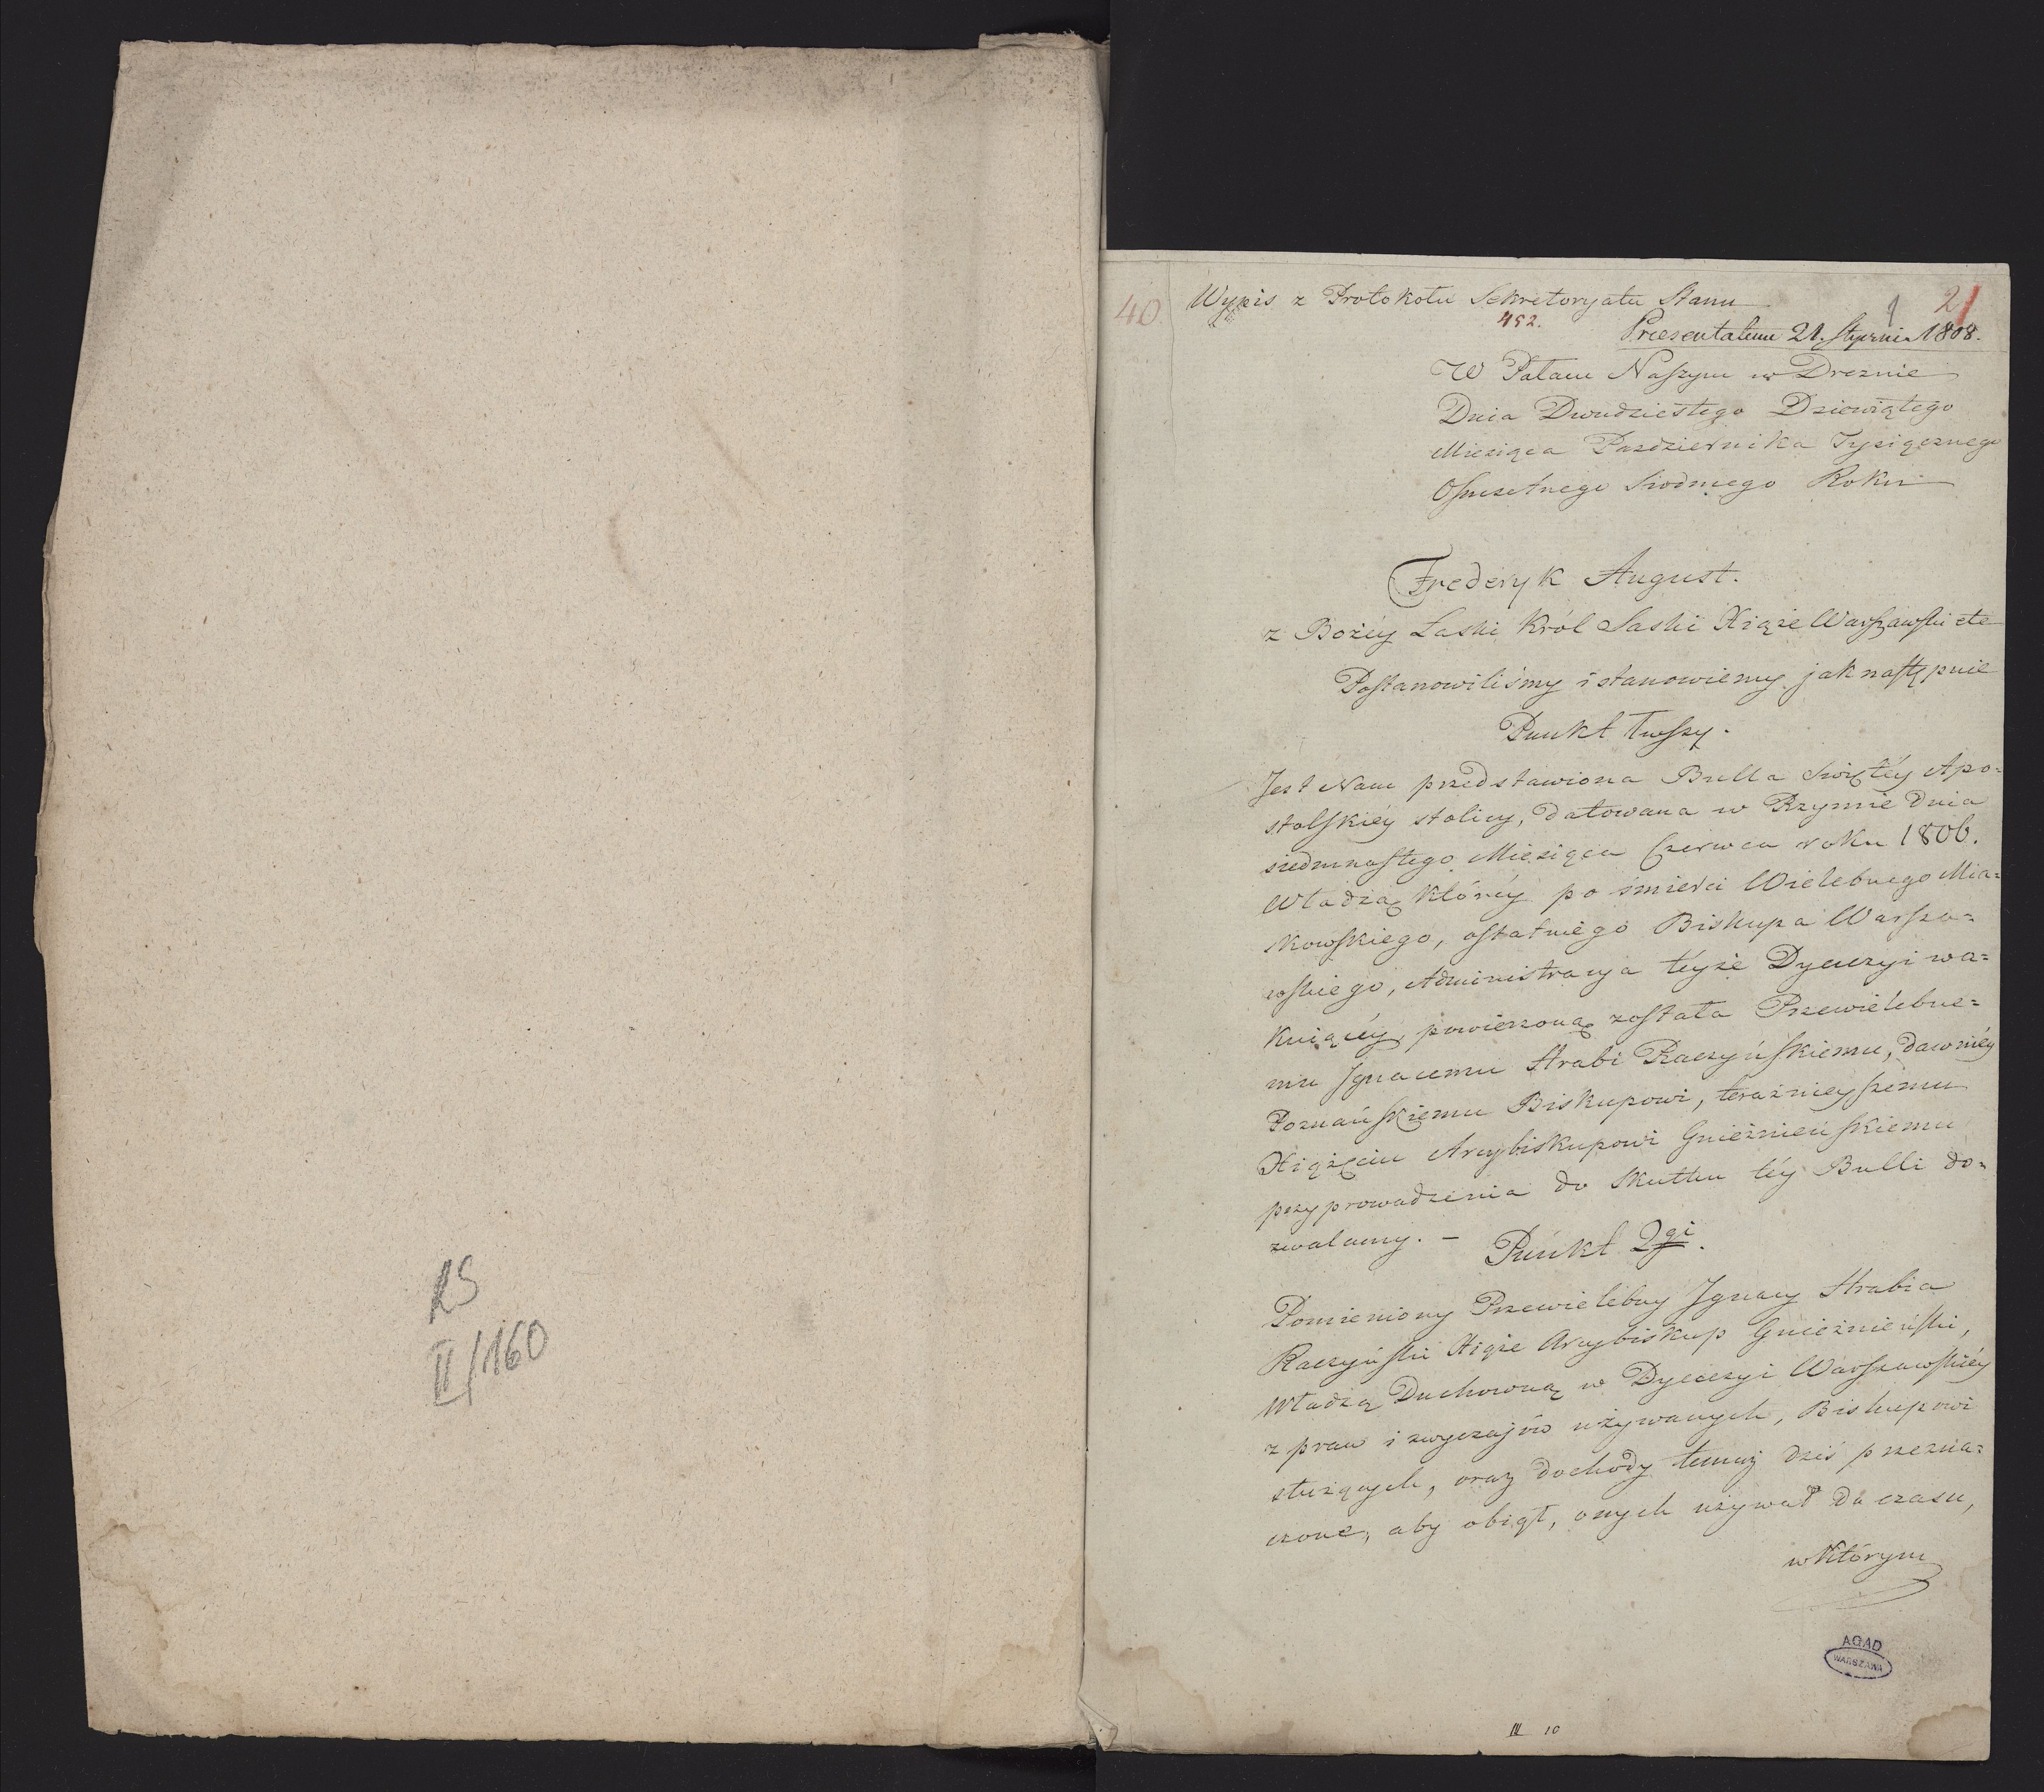 RS
II/160
40.
Wypis z Protokołu Sekretoryatu Stanu
1
21
452.
Præsentatum 21. Stycznia 1808.
W Pałacu Naszym w Dreznie
Dnia Dwudziestego Dziewiątego
Miesiąca Pazdziernika Tysiącznego
Osmsetnego Siodmego Roku
Frederyk August.
z Bożéy Łaski Król Saski Xiąże Warszawski etc
Postanowiliśmy i stanowiemy jak następuie
Punkt 1wszy.
Jest Nam przedstawiona Bulla Swiętéy Apo=
stolskiéy stolicy, datowana w Rzymie Dnia
siedmnastego Miesiąca Czerwca roku 1806.
Władzą któréy po śmierci Wielebnego Mia=
kowskiego, ostatniego Biskupa Warsza=
wskiego, Administracya téyże Dyecezyi wa=
kuiącéy, powierzoną została Przewielebne=
mu Ignacemu Hrabi Raczyńskiemu, dawniéy
Poznańskiemu Biskupowi, teraźnieyszemu
Xiążęciu Arcybiskupowi Gnieźnieńskiemu
przyprowadzenia do skutku téy Bulli do=
zwalamy. –
Punkt 2gi.
Pomieniony Przewielebny Ignacy Hrabia
Raczyński Xiąże Arcybiskup Gnieźnieński,
Władzą Duchowną w Dyecezyi Warszawskiéy
z praw i zwyczajów używanych, Biskupowi
służących, oraz dochody temuż dziś przezna=
czone, aby obiął, onych używał do czasu,
w którym
AGAD
WARSZAWA
IV 10